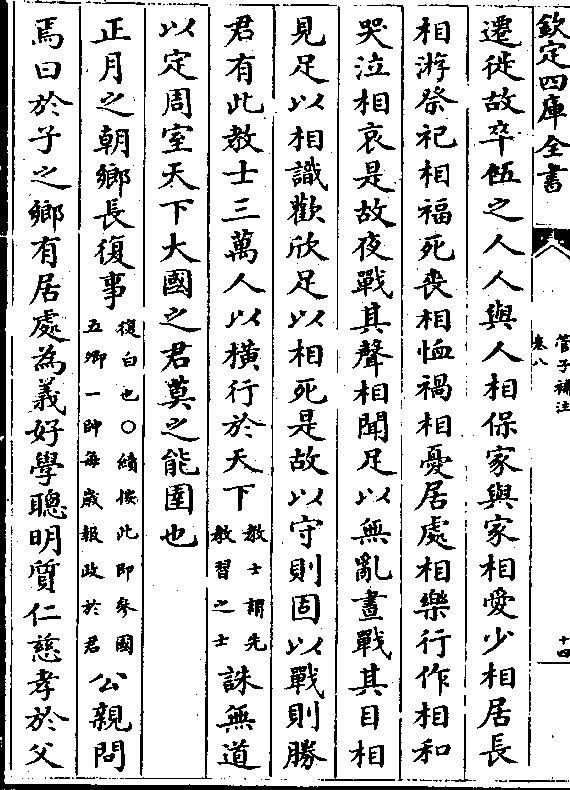 欽定四庫全書
管子補注
卷八
十四
遷徙故卒伍之人人與人相保家與家相愛少相居長
相游祭祀相福死喪相恤禍相憂居處相樂行作相和
哭泣相哀是故夜戰其聲相聞足以無亂晝戰其目相
見足以相識歡欣足以相死是故以守則固以戰則勝
君有此教士三萬人以横行於天下教士謂先教習之士誅無道
以定周室天下大國之君莫之能圉也
正月之朝鄉長復事復白也○績按此即參國五鄉一帥每歲報政於君公親問
焉曰於子之鄉有居處為義好學聰明質仁慈孝於父